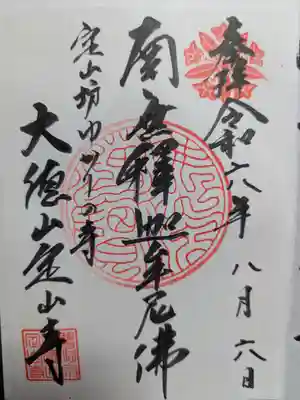 奉拝
令和六年八月六日
南無釋迦牟尼佛
定山坊ゆかりの寺
大德山定山寺